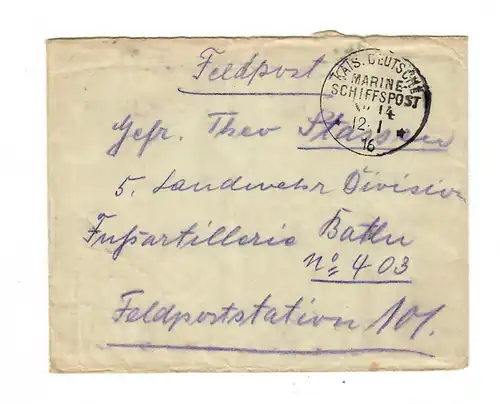 Feldpost
KAIS. DEUTSCHE
MARINE-
SCHIFFSPOST
No 14
12. 1
16
Gefr. Theo Stassen
5. Landwehr Division
Fußartillerie Battr
No 403
Feldpoststation 101.